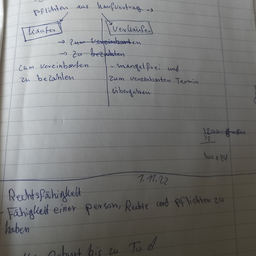 Pflichten aus Kaufvertrag →
Käufer
Verkäufer
→ Zum vereinbarten
→ Zu bezahlen
zum vereinbarten
zu bezahlen
- mangelfrei und
zum vereinbarten Termin
übergeben
7.11.22
Rechtsfähigkeit
- Fähigkeit einer person, Rechte und pflichten zu
haben
Geburt bis zu Tod